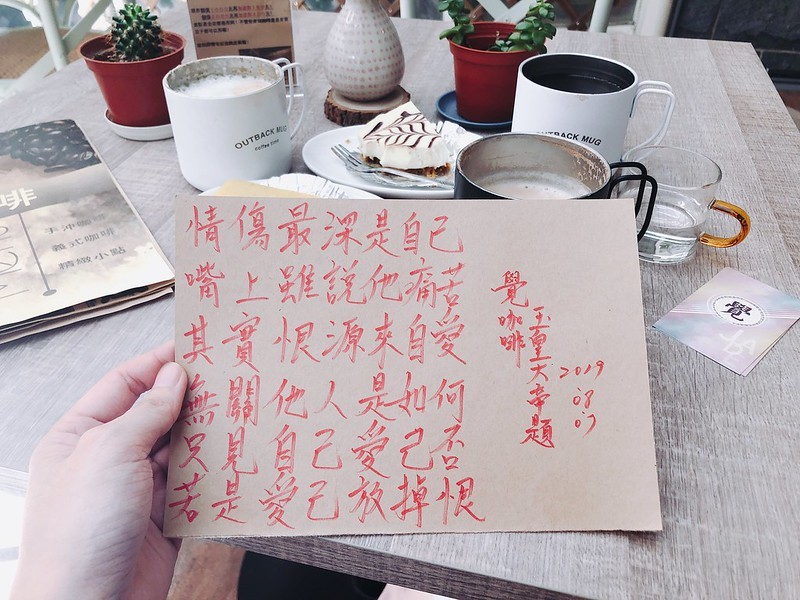 情傷最深是自己
嘴上雖說他痛苦
其實恨源來自愛
無關他人是如何
只見自己愛己否
若是愛己放掉恨
覺咖啡
玉皇大帝題
2019
08
07
OUTBACK MUG
coffee time
OUTBACK MUG
啡
手沖咖啡
義式咖啡
精緻小點
覺